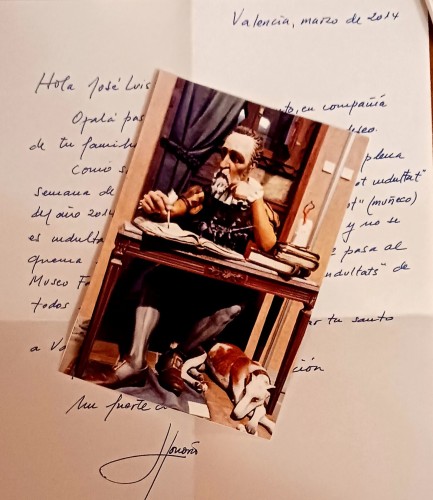 Valencia, marzo de 2014
Hola José Luis
Ojalá pas to, en compañía
de tu famili deseo.
Como s plena
semana de ot indultat"
del año 2014 ot" (muñeco)
es indulta y no se
quema pasa al
Museo Fa ndultats" de
todos
ar tu santo
a Va ción
Un fuerte a